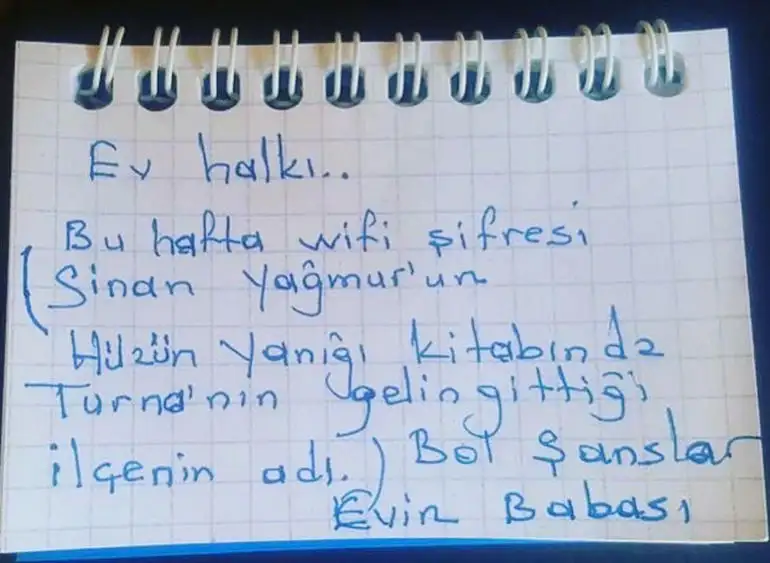 Ev halkı..
Bu hafta wifi şifresi
(Sinan Yağmur'un
Hüzün Yanığı kitabında
Turna'nın gelin gittiği
ilçenin adı.) Bol Şanslar
Evin Babası